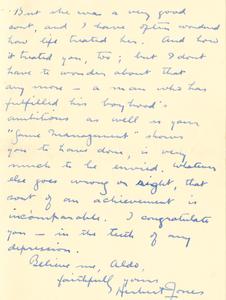 But she was a very good
sort, and I have often wondered
how life treated her. And how
it treated you, too; but I don't
have to wonder about that
any more - a man who has
fulfilled his boyhood's
ambitions as well as your
"Game Management" shows
you to have done, is very
much to be envied. Whatever
else goes wrong or right, that
sort of an achievement is
incomparable. I congratulate
you - in the teeth of any
depression.
Believe me, Aldo,
faithfully yours,
Herbert Jones